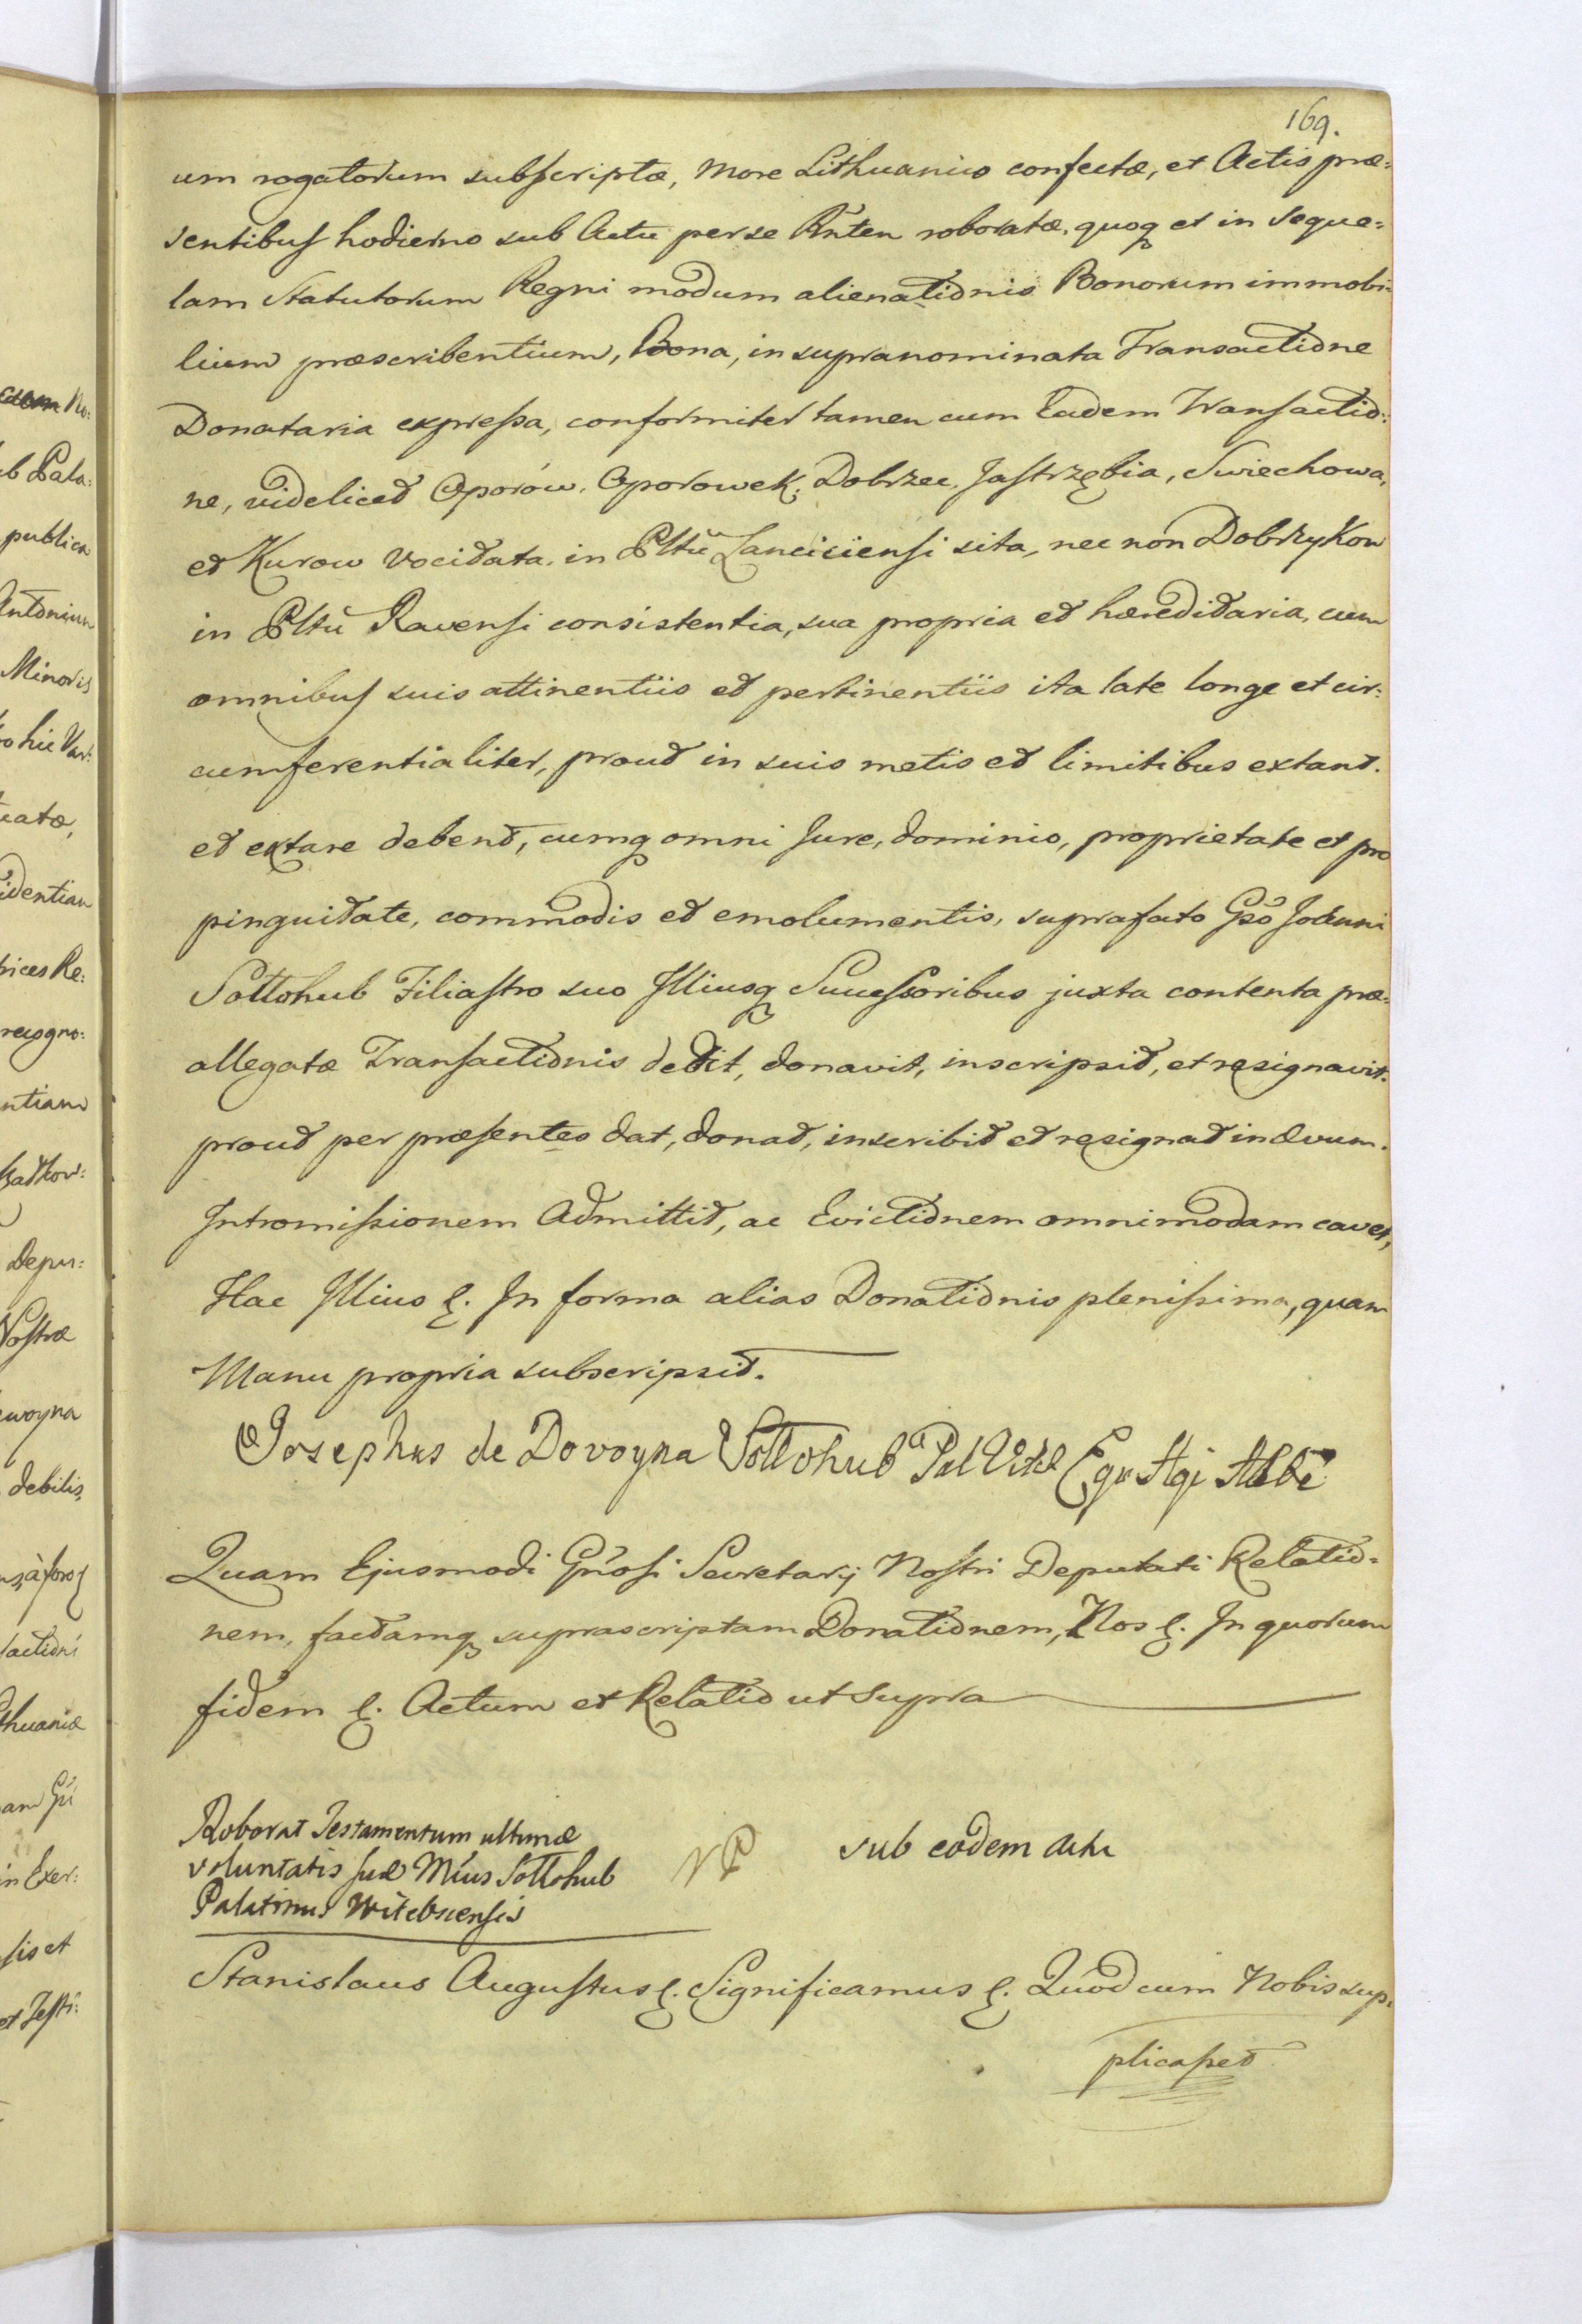 169.
um rogatorum subscriptæ, More Lithuanico confectæ, et Actis præ=
sentibus hodierno sub Actu per se Pnten roboratæ, quoq et in seque=
lam Statutorum Regni modum alienationis Bonorum immobi=
lium præscribentium, Bona, in supranominata Transactione
Donataria expressa, conformiter tamen cum Eadem Transactio=
ne, videlicet Oporów, Oporowek, Dobrzec, Jastrzębia, Swiechowa,
et Kurow vocitata, in Pltu Lanciciensi sita, nec non Dobrzykow
in Pltu Ravensi consistentia, sua propria et hæreditaria, cum
omnibus suis attinentiis et pertinentiis ita late longe et cir=
cumferentialiter, prout in suis metis et limitibus extant.
et extare debent, cumq omni Jure, dominio, proprietate et pro
pinquitate, commodis et emolumentis, suprafato Gso Joanni
Sołłohub Filiastro suo Illiusq Successoribus juxta contenta præ=
allegatæ Transactionis dedit, donavit, inscripsit, et resignavit.
prout per præsentes dat, donat, inscribit et resignat in ævum.
Intromissionem Admittit, ac Evictionem omnimodam cavet,
Hac Illius &. In forma alias Donationis plenissima, quam
Manu propria subscripsit.
Josephus de Dovoyna Sołłohub Pal Vitel Equ Aqi Albæ
Quam Ejusmodi Gnosi Secretarij Nostri Deputati Relatio=
nem, factamq suprascriptam Donationem, Nos &. In quorum
fidem &. Actum et Relatio ut supra
Roborat Testamentum ultimæ
voluntatis suæ Mcus Sołłohub
Palatinus Witebscensis
sub eodem Actu
Stanislaus Augustus &. Significamus &. Quod cum Nobis sup=
plicasset